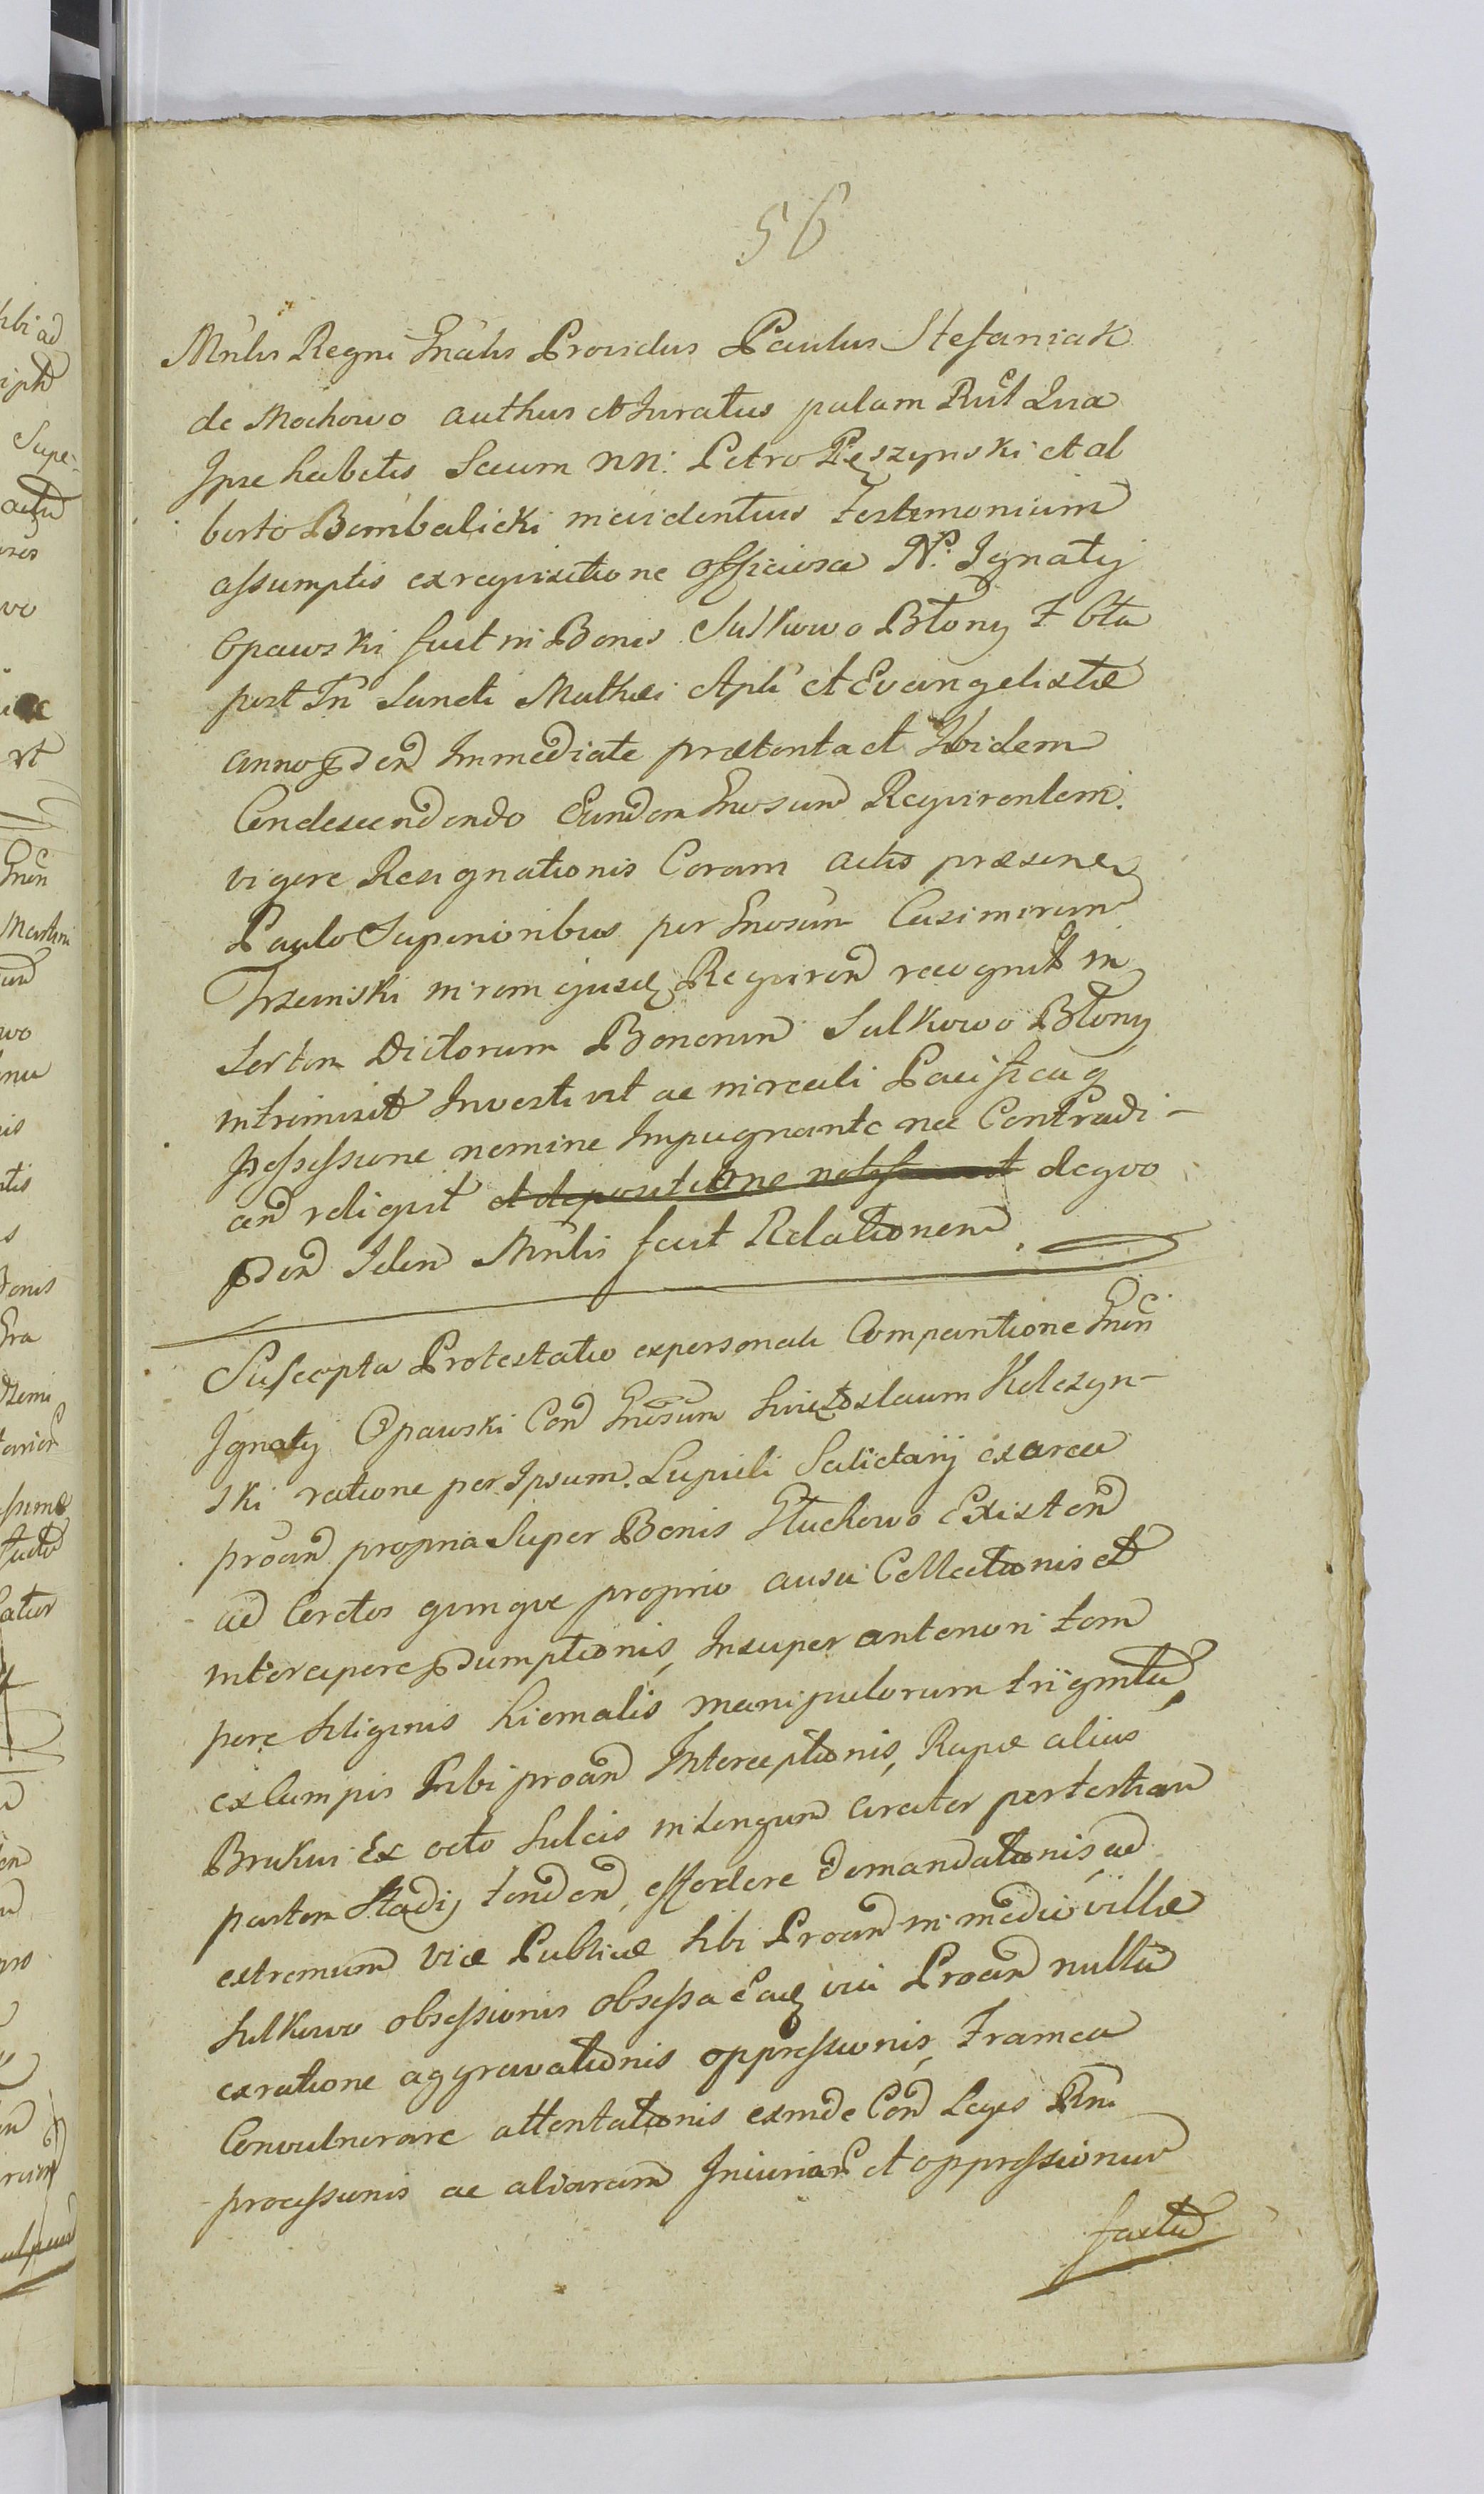 56
Mnlis Regni Gnalis Providus Paulus Stefaniak
de Mochowo authus et Juratus palam Rnt Qua
Ipse habitis Secum NN: Petro Pęszynski et al
berto Bembalicki in evidentius testimonium
assumptis ex requisitione officiosa N. Ignatij
Opawski fuit in Bonis Sulkowo Błony F bta
post Fn Sancti Mathei Apli et Evangelistæ
anno pden Immediate præterita et Ibidem
Condescendendo Eundem Gnosum Requirentem
vigore Resignationis Coram actis præsene
Paulo Superioribus per Gnosum Casimirum
Trzeinski in rem ejusd Requiren recognit in
Sortem Dictorum Bonorum Sulkowo Błony
intromisit Investivit ac in reali Pacificaq
possessione nemine Impugnante nec Contradi-
cen reliquit et depositione notificavit dequo
pden Idem Mnlis fecit Relationem
Suscepta Protestatio ex personali Comparitione Gnen
Ignatij Opawski Con Gnosum Swiętosław Kelczyn-
ski ratione per Ipsum Lupuli Salictarij ex area
proan propria Super Bonis Głuchowo Existen
ad Coretos quinque proprio ausu Collectionis et
intercipere pdumptionis, Insuper anteriori tem
pore Siliginis hiemalis manipulorum trigintu
ex Campis Sibi proan Interceptionis, Rapæ alius
Brukui Ex octo Sulcis in longum circiter per tertiam
partem Stadij tenden, effodere demandationis, ad
extremum viæ Publicæ Sibi Proan in medio villæ
Sulkowo obsessionis obsessa eaq via Proan nulla
ex ratione aggravationis oppressionis, Framea
Convulnerare attentationis exinde Con Leges Rni
processionis ac aliarum Iniuriar et oppressionum
factu